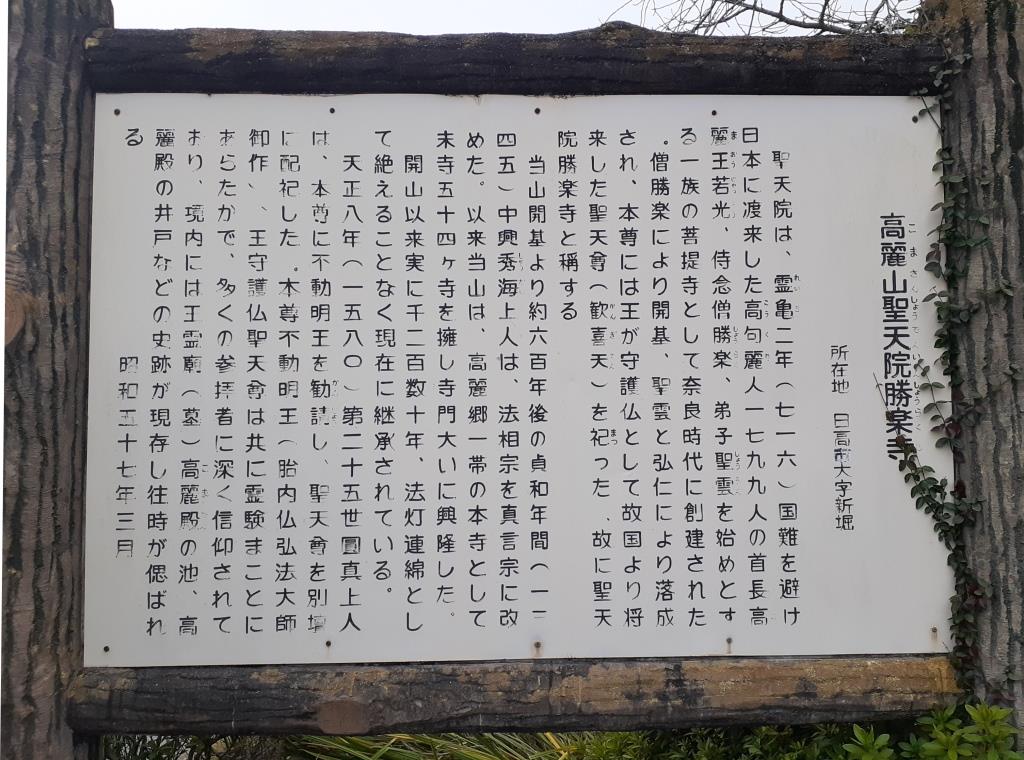 高麗山聖天院勝楽寺
所在地 日高市大字新堀
聖天院は、霊亀二年(七一六)国難を避け
日本に渡来した高句麗人一七九九人の首長高
麗王若光、侍念僧勝楽、弟子聖雲を始めとす
る一族の菩提寺として奈良時代に創建された
。僧勝楽により開基、聖雲と弘仁により落成
され、本尊には王が守護仏として故国より将
来した聖天尊(歓喜天)を祀った、故に聖天
院勝楽寺と称する
当山開基より約六百年後の貞和年間(一三
四五)中興秀海上人は、法相宗を真言宗に改
めた。以来当山は、高麗郷一帯の本寺として
末寺五十四ヶ寺を擁し寺門大いに興隆した。
開山以来実に千二百数十年、法灯連綿とし
て絶えることなく現在に継承されている。
天正八年(一五八〇)第二十五世圓真上人
は、本尊に不動明王を勧請し、聖天尊を別壇
に配祀した。本尊不動明王(胎内仏弘法大師
御作)、王守護仏聖天尊は共に霊験まことに
あらたかで、多くの参拝者に深く信仰されて
おり、境内には王霊廟(墓)高麗殿の池、高
麗殿の井戸などの史跡が現存し往時が偲ばれ
る
昭和五十七年三月